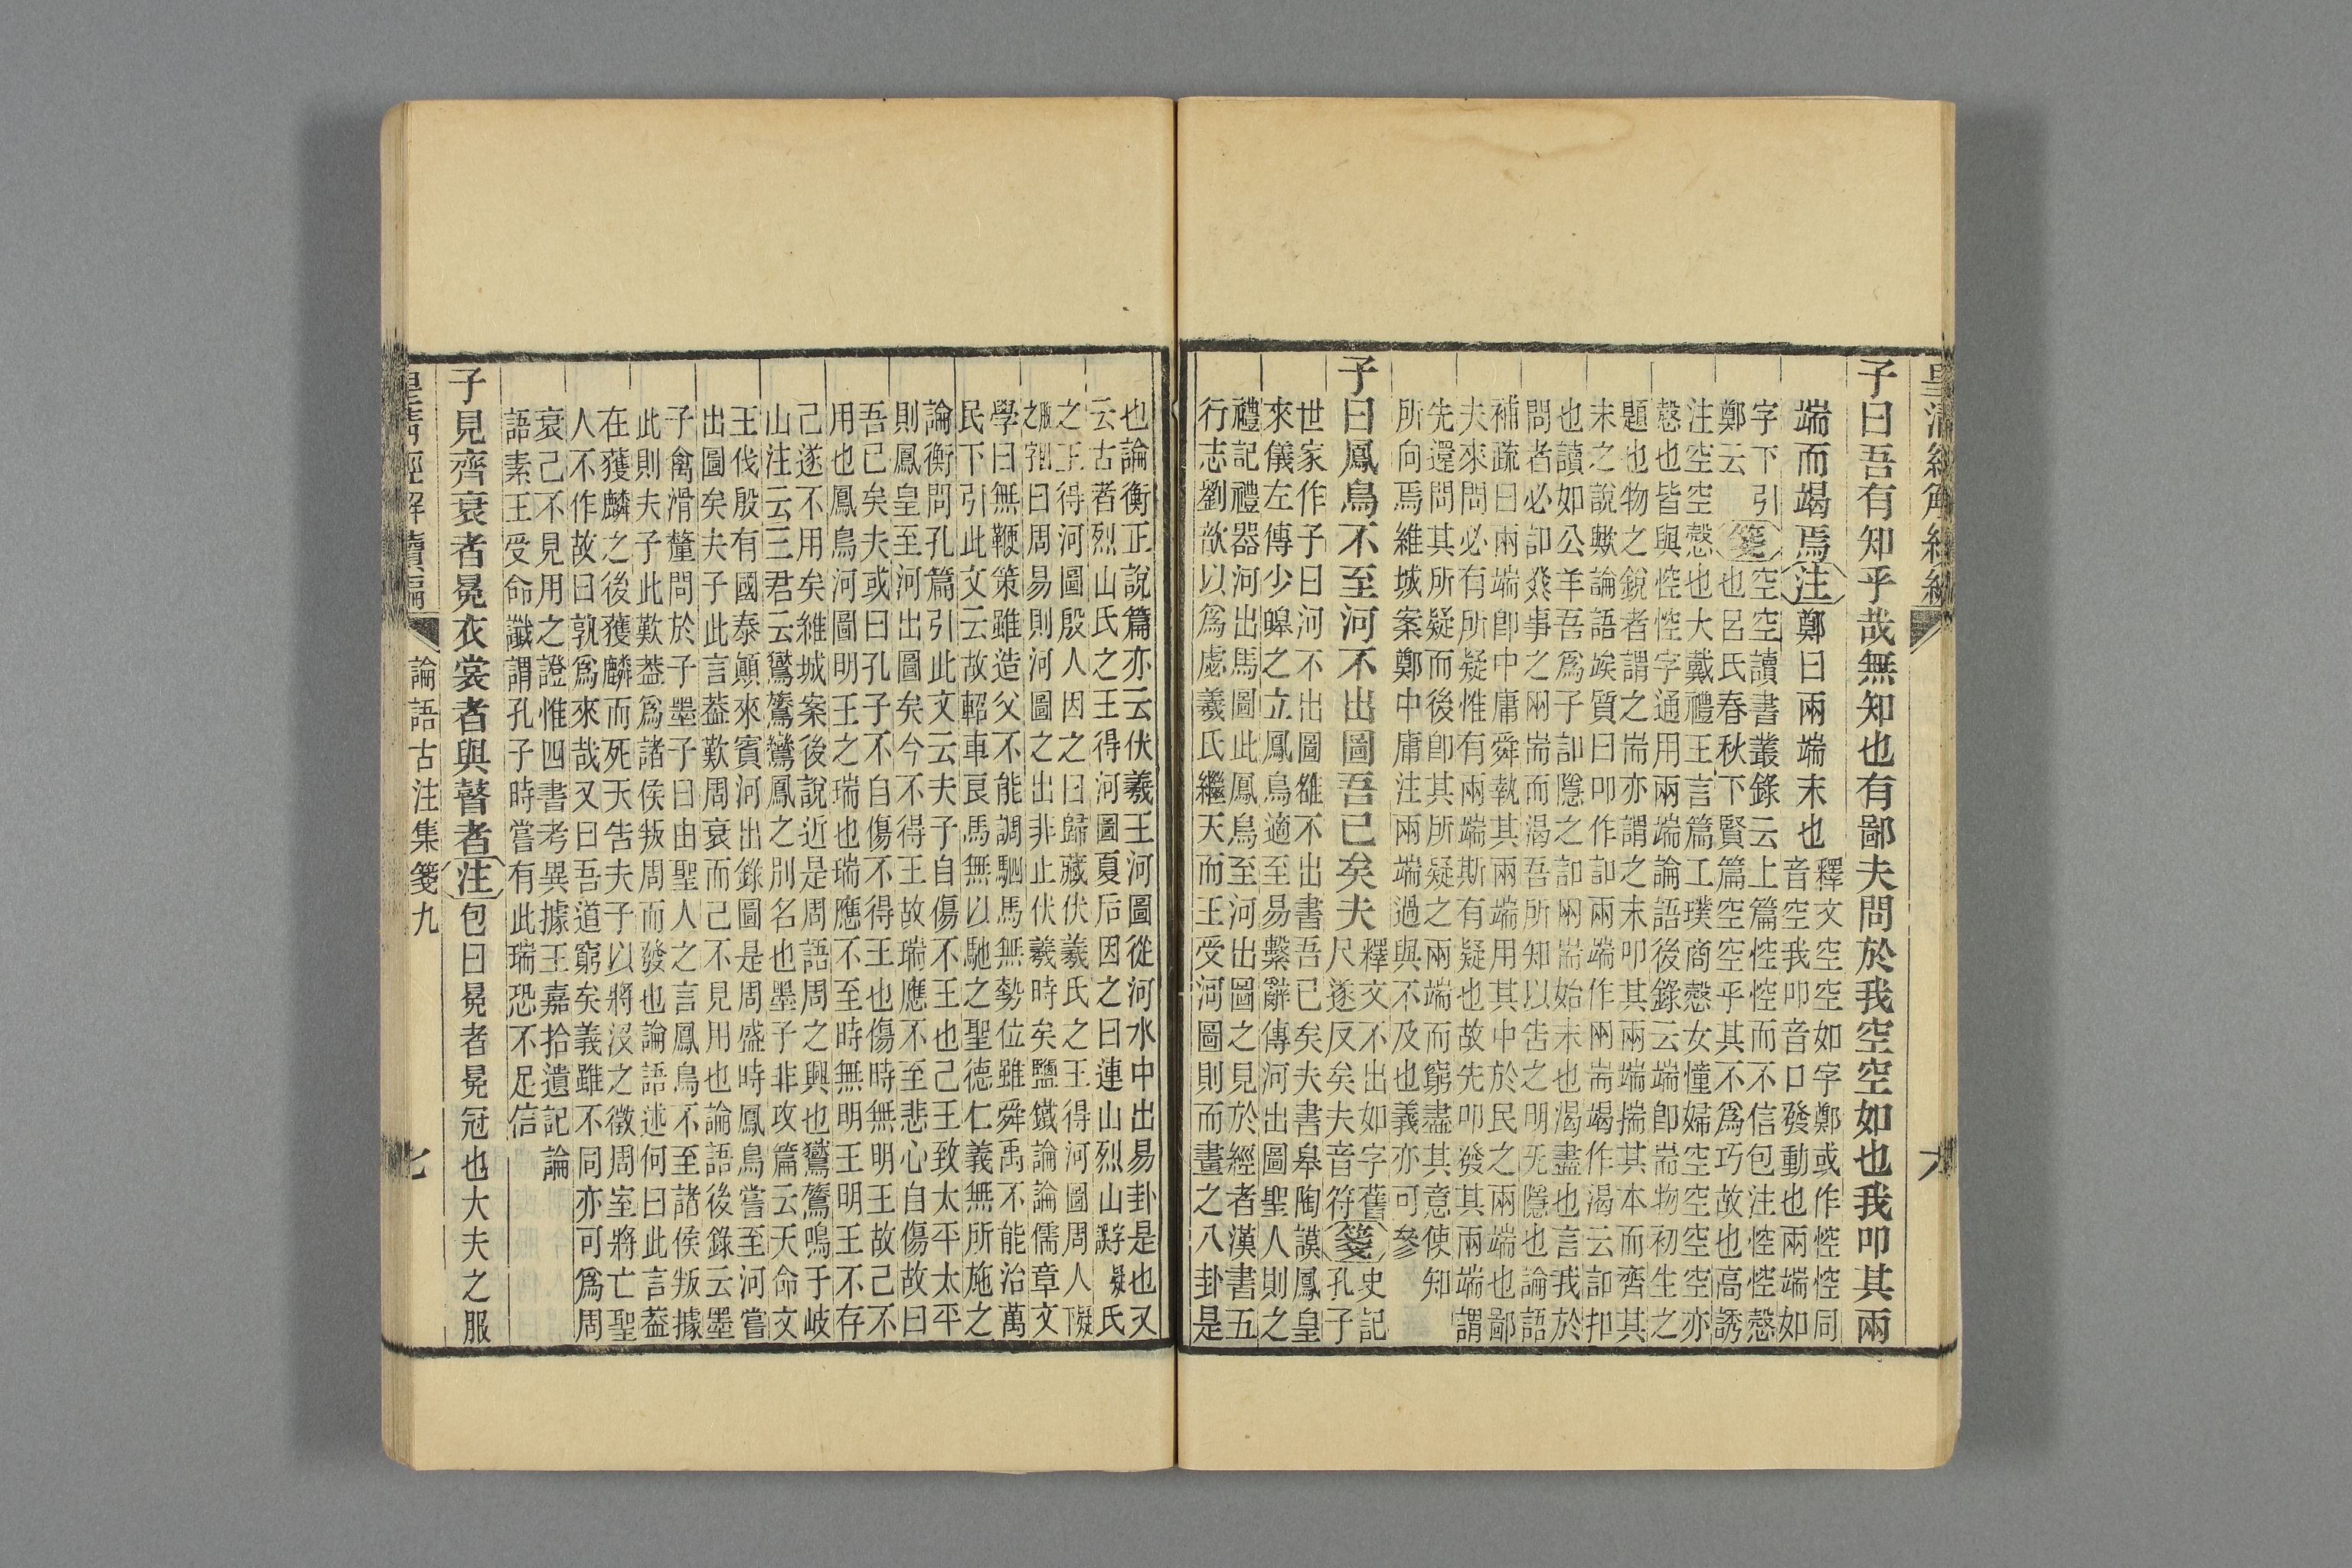 皇清經解續編
六
子曰吾有知乎哉無知也有鄙夫問於我空空如也我叩其兩
端而竭焉注鄭曰兩端末也釋文空空如字鄭或作悾悾同
音空我叩音口發動也兩端如
字下引
鄭云
箋空空讀書叢錄云上篇悾悾而不信包注悾悾愨
也呂氏春秋下賢篇空空乎其不爲巧故也高誘
注空空愨也大戴禮王言篇工璞商愨女憧婦空空空空亦
愨也皆與悾悾字通用兩端論語後錄云端卽耑物初生之
題也物之銳者謂之耑亦謂之末叩其兩端揣其本而齊其
末之說歟論語竢質曰叩作訆兩端作兩耑竭作渴云訆扣
也讀如公羊吾爲子訆隱之訆兩耑始末也渴盡也言我於
問者必訆發事之兩耑而渴吾所知以告之明无隱也論語
補疏曰兩端卽中庸舜執其兩端用其中於民之兩端也鄙
夫來問必有所疑惟有兩端斯有疑也故先叩發其兩端謂
先還問其所疑而後卽其所疑之兩端而窮盡其意使知
所向焉維城案鄭中庸注兩端過與不及也義亦可參
子曰鳳鳥不至河不出圖吾已矣夫釋文不出如字舊
尺遂反矣夫音符
箋史記
孔子
世家作子曰河不出圖雒不出書吾已矣夫書皋陶謨鳳皇
來儀左傳少皞之立鳳鳥適至易繫辭傳河出圖聖人則之
禮記禮器河出馬圖此鳳鳥至河出圖之見於經者漢書五
行志劉歆以爲虙羲氏繼天而王受河圖則而畫之八卦是
也論衡正說篇亦云伏羲王河圖從河水中出易卦是也又
云古者烈山氏之王得河圖夏后因之曰連山烈山氏
之王得河圖殷人因之曰歸藏伏羲氏之王得河圖周人
曰周易則河圖之出非止伏羲時矣鹽鐵論論儒章文
學曰無鞭策雖造父不能調駟馬無勢位雖舜禹不能治萬
民下引此文云故軺車良馬無以馳之聖德仁義無所施之
論衡問孔篇引此文云夫子自傷不王也己王致太平太平
則鳳皇至河出圖矣今不得王故瑞應不至悲心自傷故曰
吾已矣夫或曰孔子不自傷不得王也傷時無明王故己不
用也鳳鳥河圖明王之瑞也瑞應不至時無明王明王不存
己遂不用矣維城案後說近是周語周之興也鸑鷟鳴于岐
山注云三君云鸑鷟鸞鳳之別名也墨子非攻篇云天命文
王伐殷有國泰顚來賓河出錄圖是周盛時鳳鳥嘗至河嘗
出圖矣夫子此言葢歎周衰而己不見用也論語後錄云墨
子禽滑釐問於子墨子曰由聖人之言鳳鳥不至諸侯叛據
此則夫子此歎葢爲諸侯叛周而發也論語述何曰此言葢
在獲麟之後獲麟而死天告夫子以將沒之徵周室將亡聖
人不作故曰孰爲來哉又曰吾道窮矣義雖不同亦可爲周
衰己不見用之證惟四書考異據王嘉拾遺記論
語素王受命讖謂孔子時嘗有此瑞恐不足信
子見齊衰者冕衣裳者與瞽者注包曰冕者冕冠也大夫之服
皇清經解續編
論語古注集箋九
七